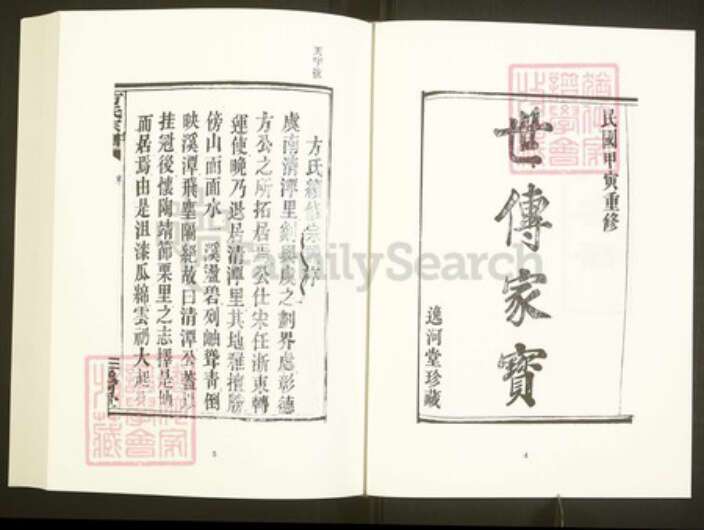 民國甲寅重修
世傳家寶
逸河堂珍藏
4
方氏續修宗譜序
虞南清潭里剡與虞之劃界處彰德
方公之所拓居焉公仕宋任浙東轉
運使晚乃退居清潭里其地雅擅勝
傍山而面水溪瀲碧列岫聳青倒
映溪潭飛塵隔絕故曰清潭公蓋
挂冠後懷陶靖節栗里之志擇是地
而居焉由是沮漆瓜綿雲礽大起
方氏宗譜
5
FamilySearch